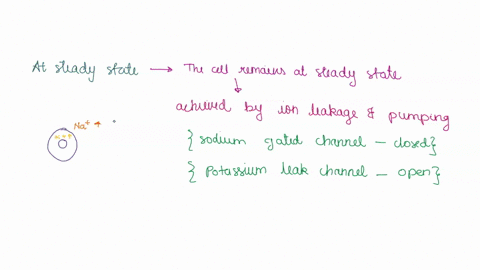 At steady state → The cell remains at steady state
↓
achieved by ion leakage & pumping
{sodium gated channel - closed}
{Potassium leak channel - open}
Na⁺ +